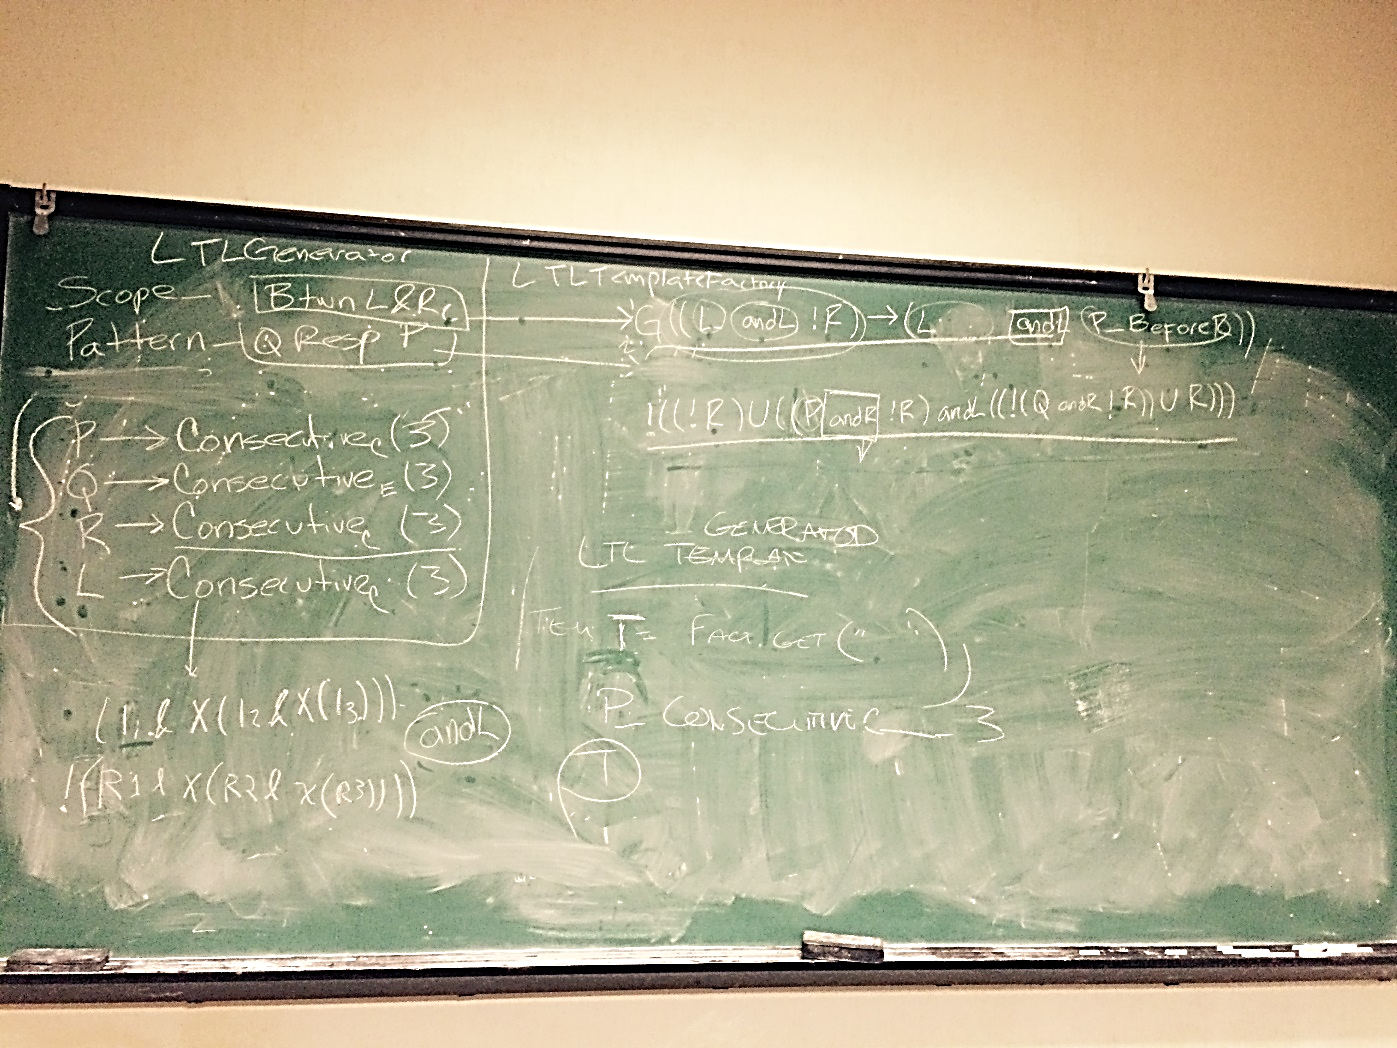 LTLGenerator
Scope - Btwn L&Rc
Pattern - Q Resp P
P → ConsecutiveC (3)
Q → ConsecutiveE (3)
R → ConsecutiveC (3)
L → ConsecutiveC (3)
(l1 & X(l2 & X(l3))) andL
!(R1 & X(R2 & X(R3)))
LTLTemplateFactory
G((L andL !R) → (L andL (P_BeforeR))
!((!R) U ((P andR !R) andL ((!(Q andR !R)) U R)))
GENERATOR
LTL
T = FACT.GET(" ")
P_CONSECUTIVEC_3
T